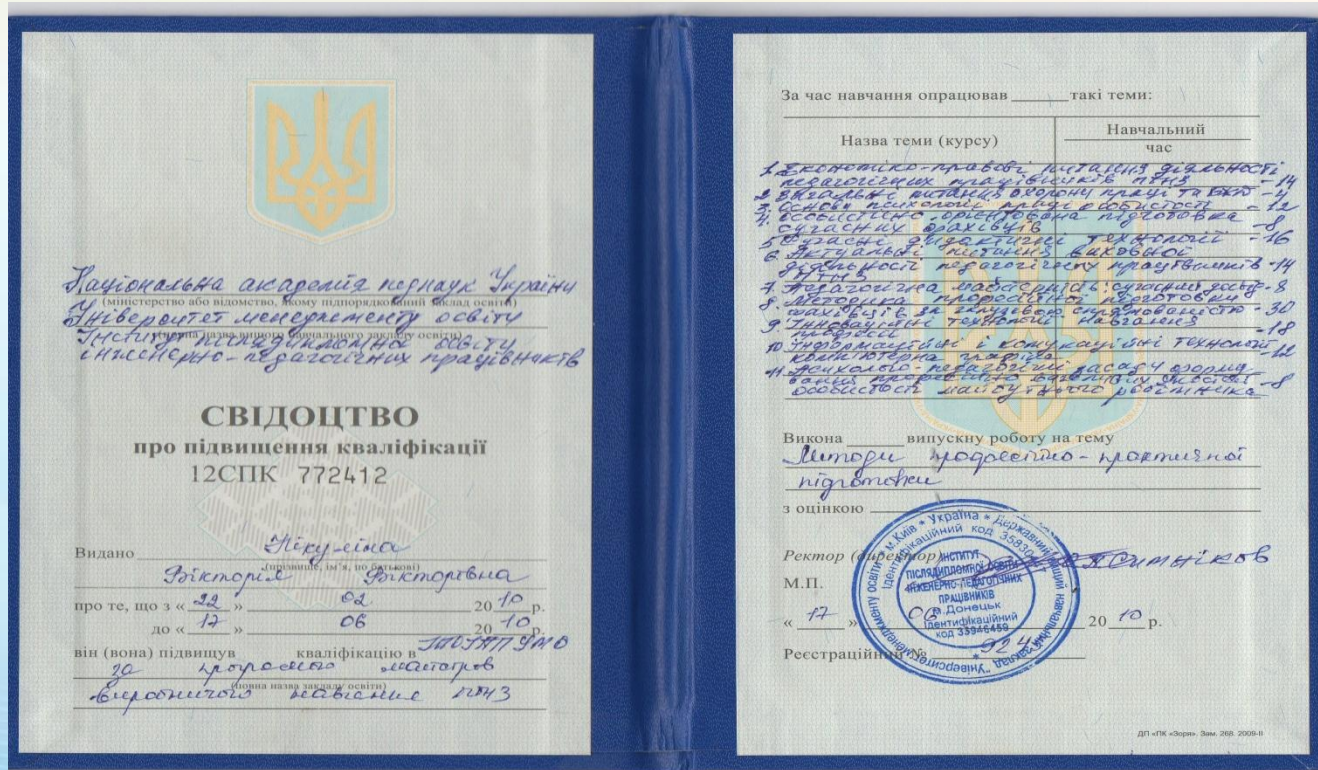 Національна академія педнаук України
(міністерство або відомство, якому підпорядкований заклад освіти)
Університет менеджменту освіти
(повна назва вищого навчального закладу освіти)
Інститут післядипломної освіти
інженерно-педагогічних працівників
СВІДОЦТВО
про підвищення кваліфікації
12СПК 772412
Видано Нікуліна
(прізвище, ім'я, по батькові)
Вікторія Вікторівна
про те, що з « 22 » 02 20 10 р.
до « 17 » 06 20 10 р.
він (вона) підвищув кваліфікацію в
за програмою майстрів
(повна назва закладу освіти)
виробничого навчання ПТНЗ
За час навчання опрацював такі теми:
Назва теми (курсу) Навчальний
час
1. Економіко-правові питання діяльності
педагогічних працівників ПТНЗ -14
2. Загальні питання охорони праці та БЖД -4
3. Основи психології праці особистості -12
4. Особистісно орієнтована підготовка
сучасних фахівців -8
5. Сучасні дидактичні технології -16
6. Актуальні питання виховної
діяльності педагогічних працівників -14
7. Педагогічна майстерність: сучасний досвід -8
8. Методика професійної підготовки
фахівців за галузевою спрямованістю -30
9. Інноваційні технології навчання
професії -18
10. Інформаційні і комукаційні технології
комп'ютерна графіка -12
11. Психолого-педагогічні засади формування
професійно важливих якостей
особистості майбутнього робітника -8
Викона випускну роботу на тему
Методи професійно-практичної
підготовки
з оцінкою
Ректор (директор)
М.П.
« 17 » 06 20 10 р.
Реєстраційний №
ІНСТИТУТ
ПІСЛЯДИПЛОМНОЇ ОСВІТИ
ІНЖЕНЕРНО-ПЕДАГОГІЧНИХ
ПРАЦІВНИКІВ
м.Донецьк
Ідентифікаційний
код 33946459
ДП «ПК «Зоря». Зам. 268. 2009-II